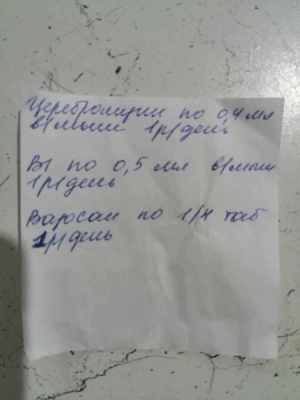 Церебролизин по 0,4 мл
в/мыш 1р/день
В1 по 0,5 мл в/мыш
1р/день
по 1/4 таб
1р/день